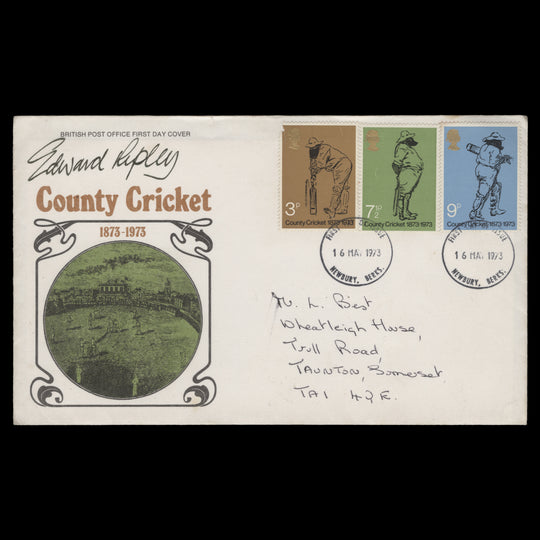 BRITISH POST OFFICE FIRST DAY COVER
Edward Ripley
County Cricket
1873-1973
3P
County Cricket 1873-1973
7½P
County Cricket 1873-1973
9P
County Cricket 1873-1973
FIRST DAY OF ISSUE
16 MAY 1973
NEWBURY, BERKS.
FIRST DAY OF ISSUE
16 MAY 1973
NEWBURY, BERKS.
W. L. Best
Wheatleigh House,
Trull Road,
TAUNTON, Somerset.
TA1 4QE.